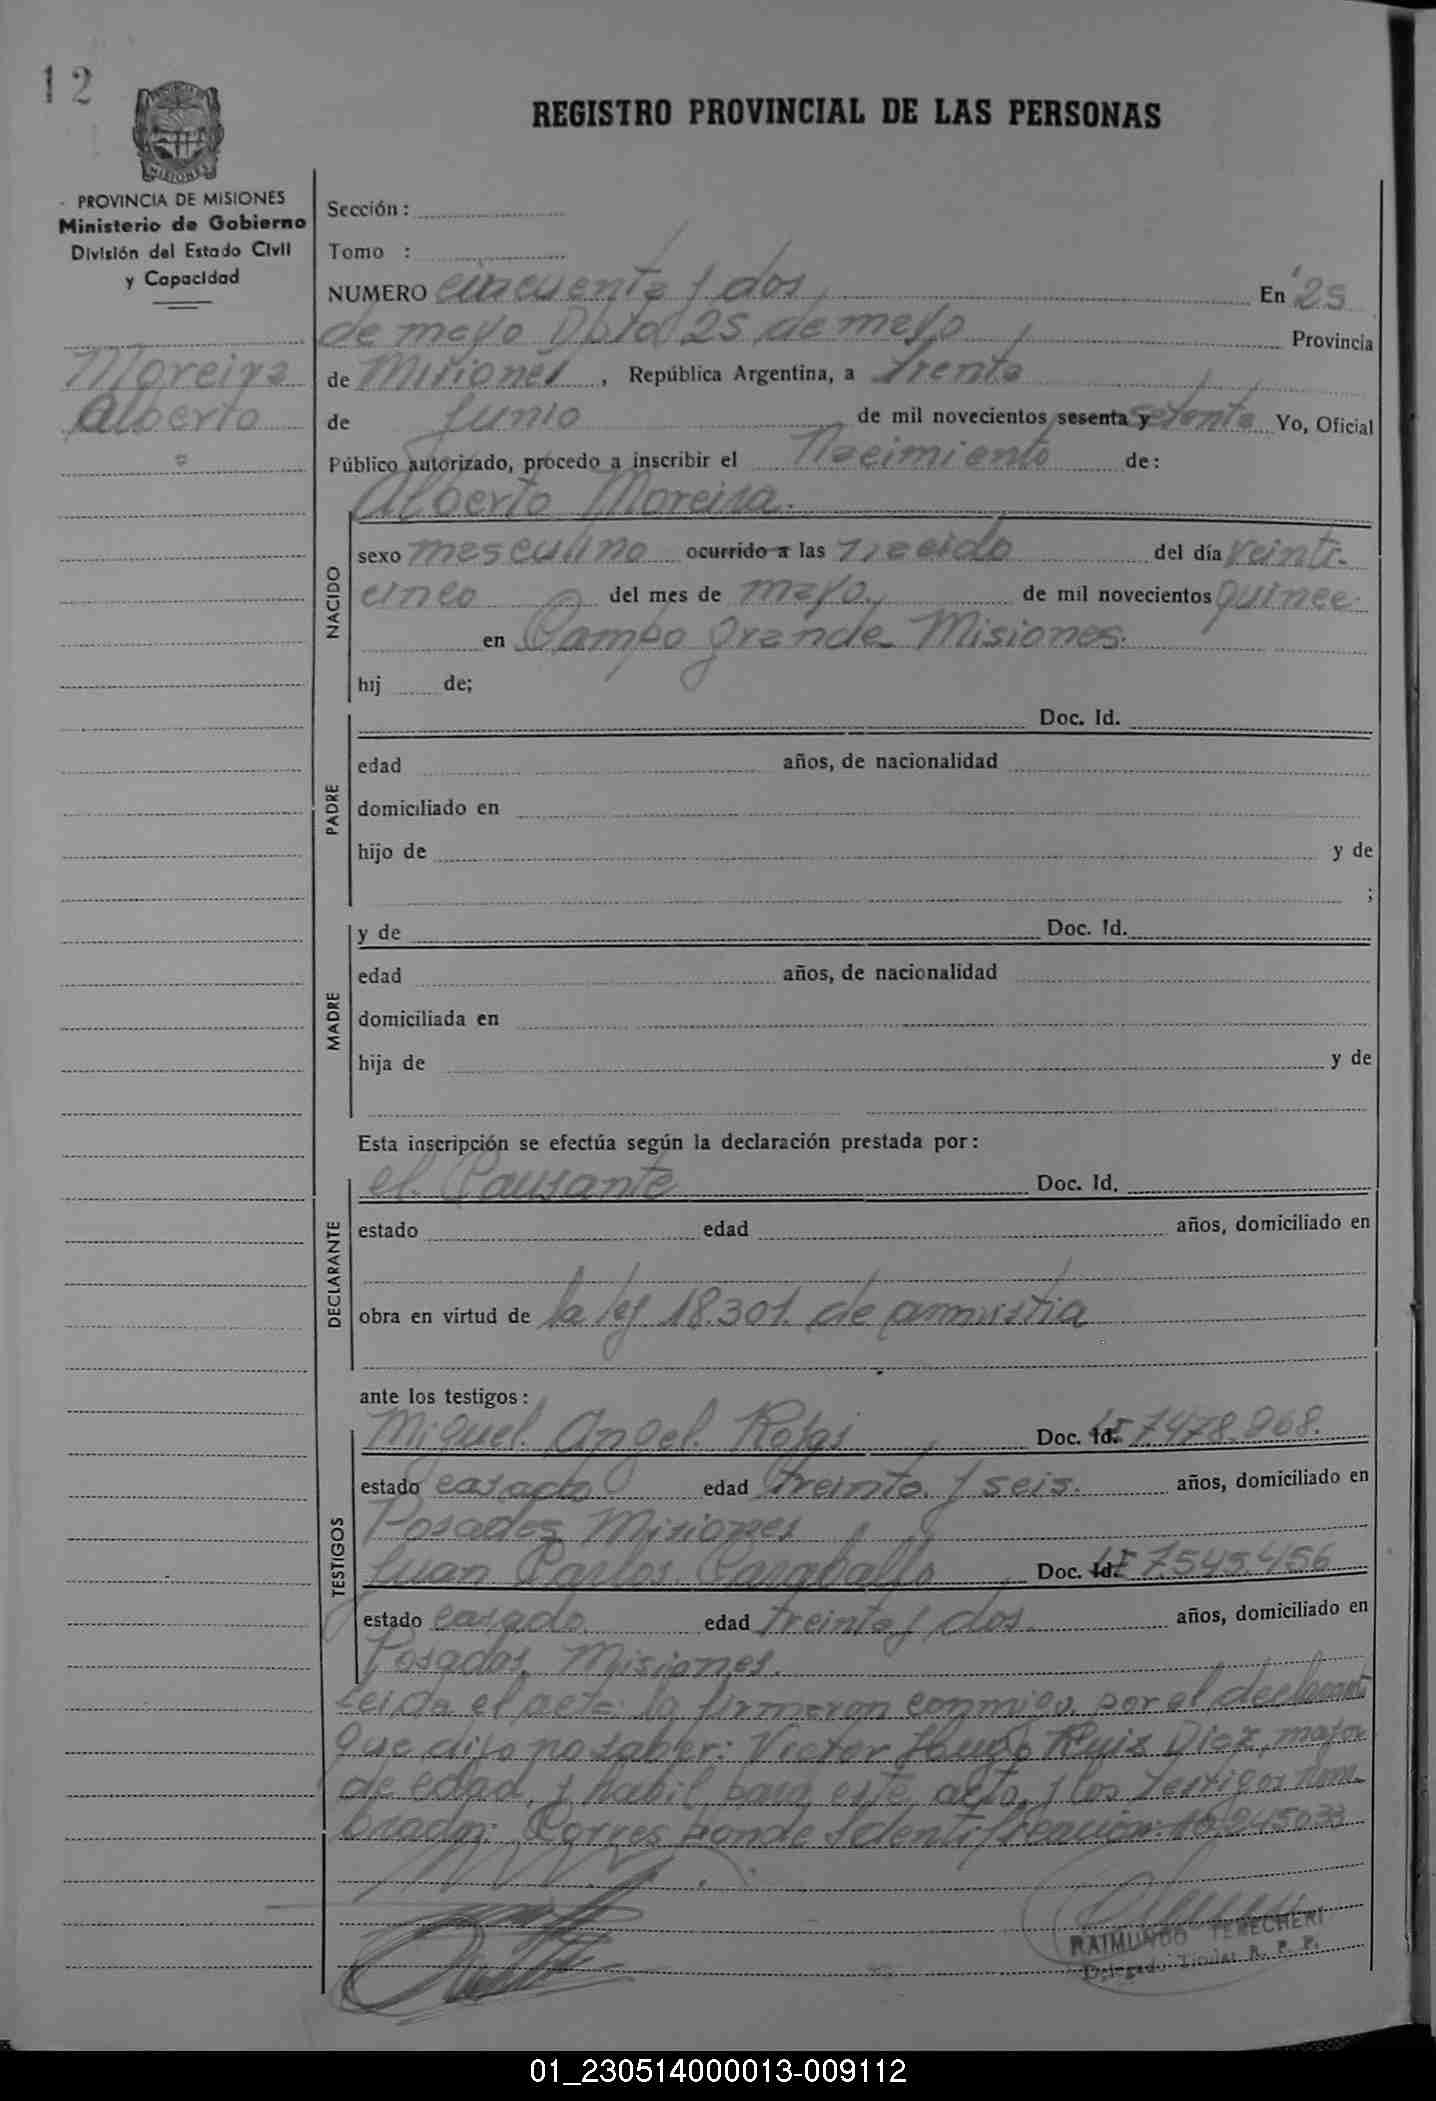 12
REGISTRO PROVINCIAL DE LAS PERSONAS
PROVINCIA DE MISIONES
Ministerio de Gobierno
División del Estado Civil
y Capacidad
Moreira
Alberto
Sección:
Tomo :
NUMERO cincuenta y dos En 25
de mayo Dpto 25 de mayo Provincia
de Misiones, República Argentina, a trenta
de Junio de mil novecientos sesenta y setenta Yo, Oficial
Público autorizado, procedo a inscribir el Nacimiento de:
Alberto Moreira.
NACIDO
sexo masculino ocurrido a las nacido del día veinti-
cinco del mes de mayo. de mil novecientos quince
en Campo grande Misiones.
hij de;
PADRE
Doc. Id.
edad años, de nacionalidad
domiciliado en
hijo de y de
;
MADRE
y de Doc. Id.
edad años, de nacionalidad
domiciliada en
hija de y de
Esta inscripción se efectúa según la declaración prestada por:
DECLARANTE
el Causante Doc. Id.
estado edad años, domiciliado en
obra en virtud de la ley 18.301. de amnistia
ante los testigos:
TESTIGOS
Miguel Angel Rojas Doc. Id. LE 7478.268.
estado casado edad treinta y seis. años, domiciliado en
Posadas Misiones
Juan Carlos Doc. Id. LE 7.545.456
estado casado edad treinta y dos. años, domiciliado en
Posadas, Misiones.
Leida el acta la firmaron conmigo, por el declarante
que dijo no saber: Victor Hugo Ruiz Diaz, mayor
de edad, y habil para este acto, y los testigos nom-
brados. Corresponde Identificación:
RAIMUNDO TERECHERI
Delegado Titular R. P. P.
01_230514000013-009112